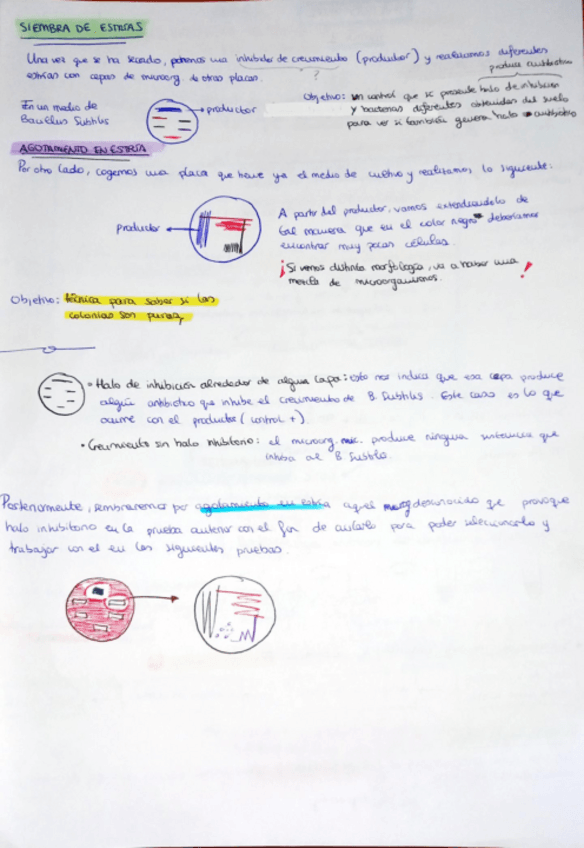 SIEMBRA DE ESTRÍAS
Una vez que se ha secado, ponemos una inhibidor de crecimiento (productor) y realizamos diferentes
estrías con cepas de microorg. de otras placas.
?
produce antibiótico
Objetivo: un control que si presente halo de inhibición
y bacterias diferentes obtenidas del suelo
para ver si también genera halo antibiótico
En un medio de
Bacillus Subtilis
productor
AGOTAMIENTO EN ESTRÍA
Por otro lado, cogemos una placa que tiene ya el medio de cultivo y realizamos lo siguiente:
productor
A partir del productor, vamos extendiéndolo de
tal manera que en el color negro deberíamos
encontrar muy pocas células.
¡Si vemos distinta morfología, va a haber una
mezcla de microorganismos. !
Objetivo: técnica para saber si las
colonias son puras,
• Halo de inhibición alrededor de alguna cepa: esto nos indica que esa cepa produce
algún antibiótico que inhibe el crecimiento de B. Subtilis. Este caso es lo que
ocurre con el productor (control +).
• Crecimiento sin halo inhibitorio: el microorg. no produce ninguna sustancia que
inhiba al B. Subtilis.
Posteriormente, sembraremos por agotamiento en estría aquel desconocido que provoque
halo inhibitorio en la prueba anterior con el fin de aislarlo para poder seleccionarlo y
trabajar con el en las siguientes pruebas.